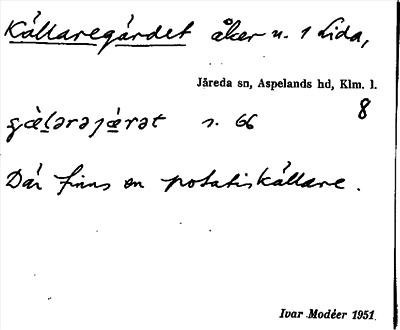 Källaregärdet åker n. 1 Lida,
Järeda sn, Aspelands hd, Klm. l.
8
s. 66
Där finns en potatiskällare.
Ivar Modéer 1951.